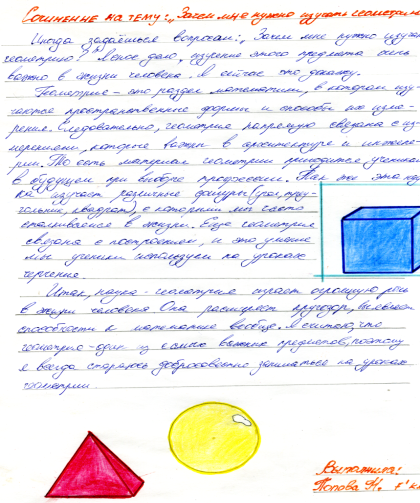 Сочинение на тему: „Зачем мне нужно изучать геометрию
Иногда задаёшься вопросом: „Зачем мне нужно изучать
геометрию?" Ясное дело, изучение этого предмета очень
важно в жизни человека. Я сейчас это докажу.
Геометрия - это раздел математики, в котором изу-
чаются пространственные формы и способы их изме-
рения. Следовательно, геометрия напрямую связана с из-
мерениями, которые важны в архитектуре и инжене-
рии. То есть материал геометрии пригодится ученикам
в будущем при выборе профессии. Так же эта нау-
ка изучает различные фигуры (треу-
гольник, квадрат), с которыми мы часто
сталкиваемся в жизни. Ещё геометрия
связана с построением, и это умение
мы ученики используем на уроках
черчения.
Итак, наука - геометрия играет огромную роль
в жизни человека. Она расширяет кругозор,
способности к математике вообще. Я считаю, что
геометрия - один из самых важных предметов, поэтому
я всегда стараюсь добросовестно заниматься на уроках
геометрии
Выполнила:
Попова Н. 7 кл